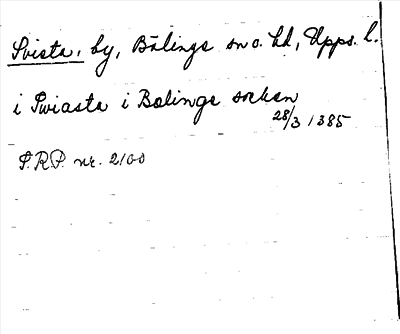 Svista, by, Bälinge sn o. hd, Upps. l.
i Swiasta i Bælinge sokən
28/3 1385
S.R.P. nr. 2100